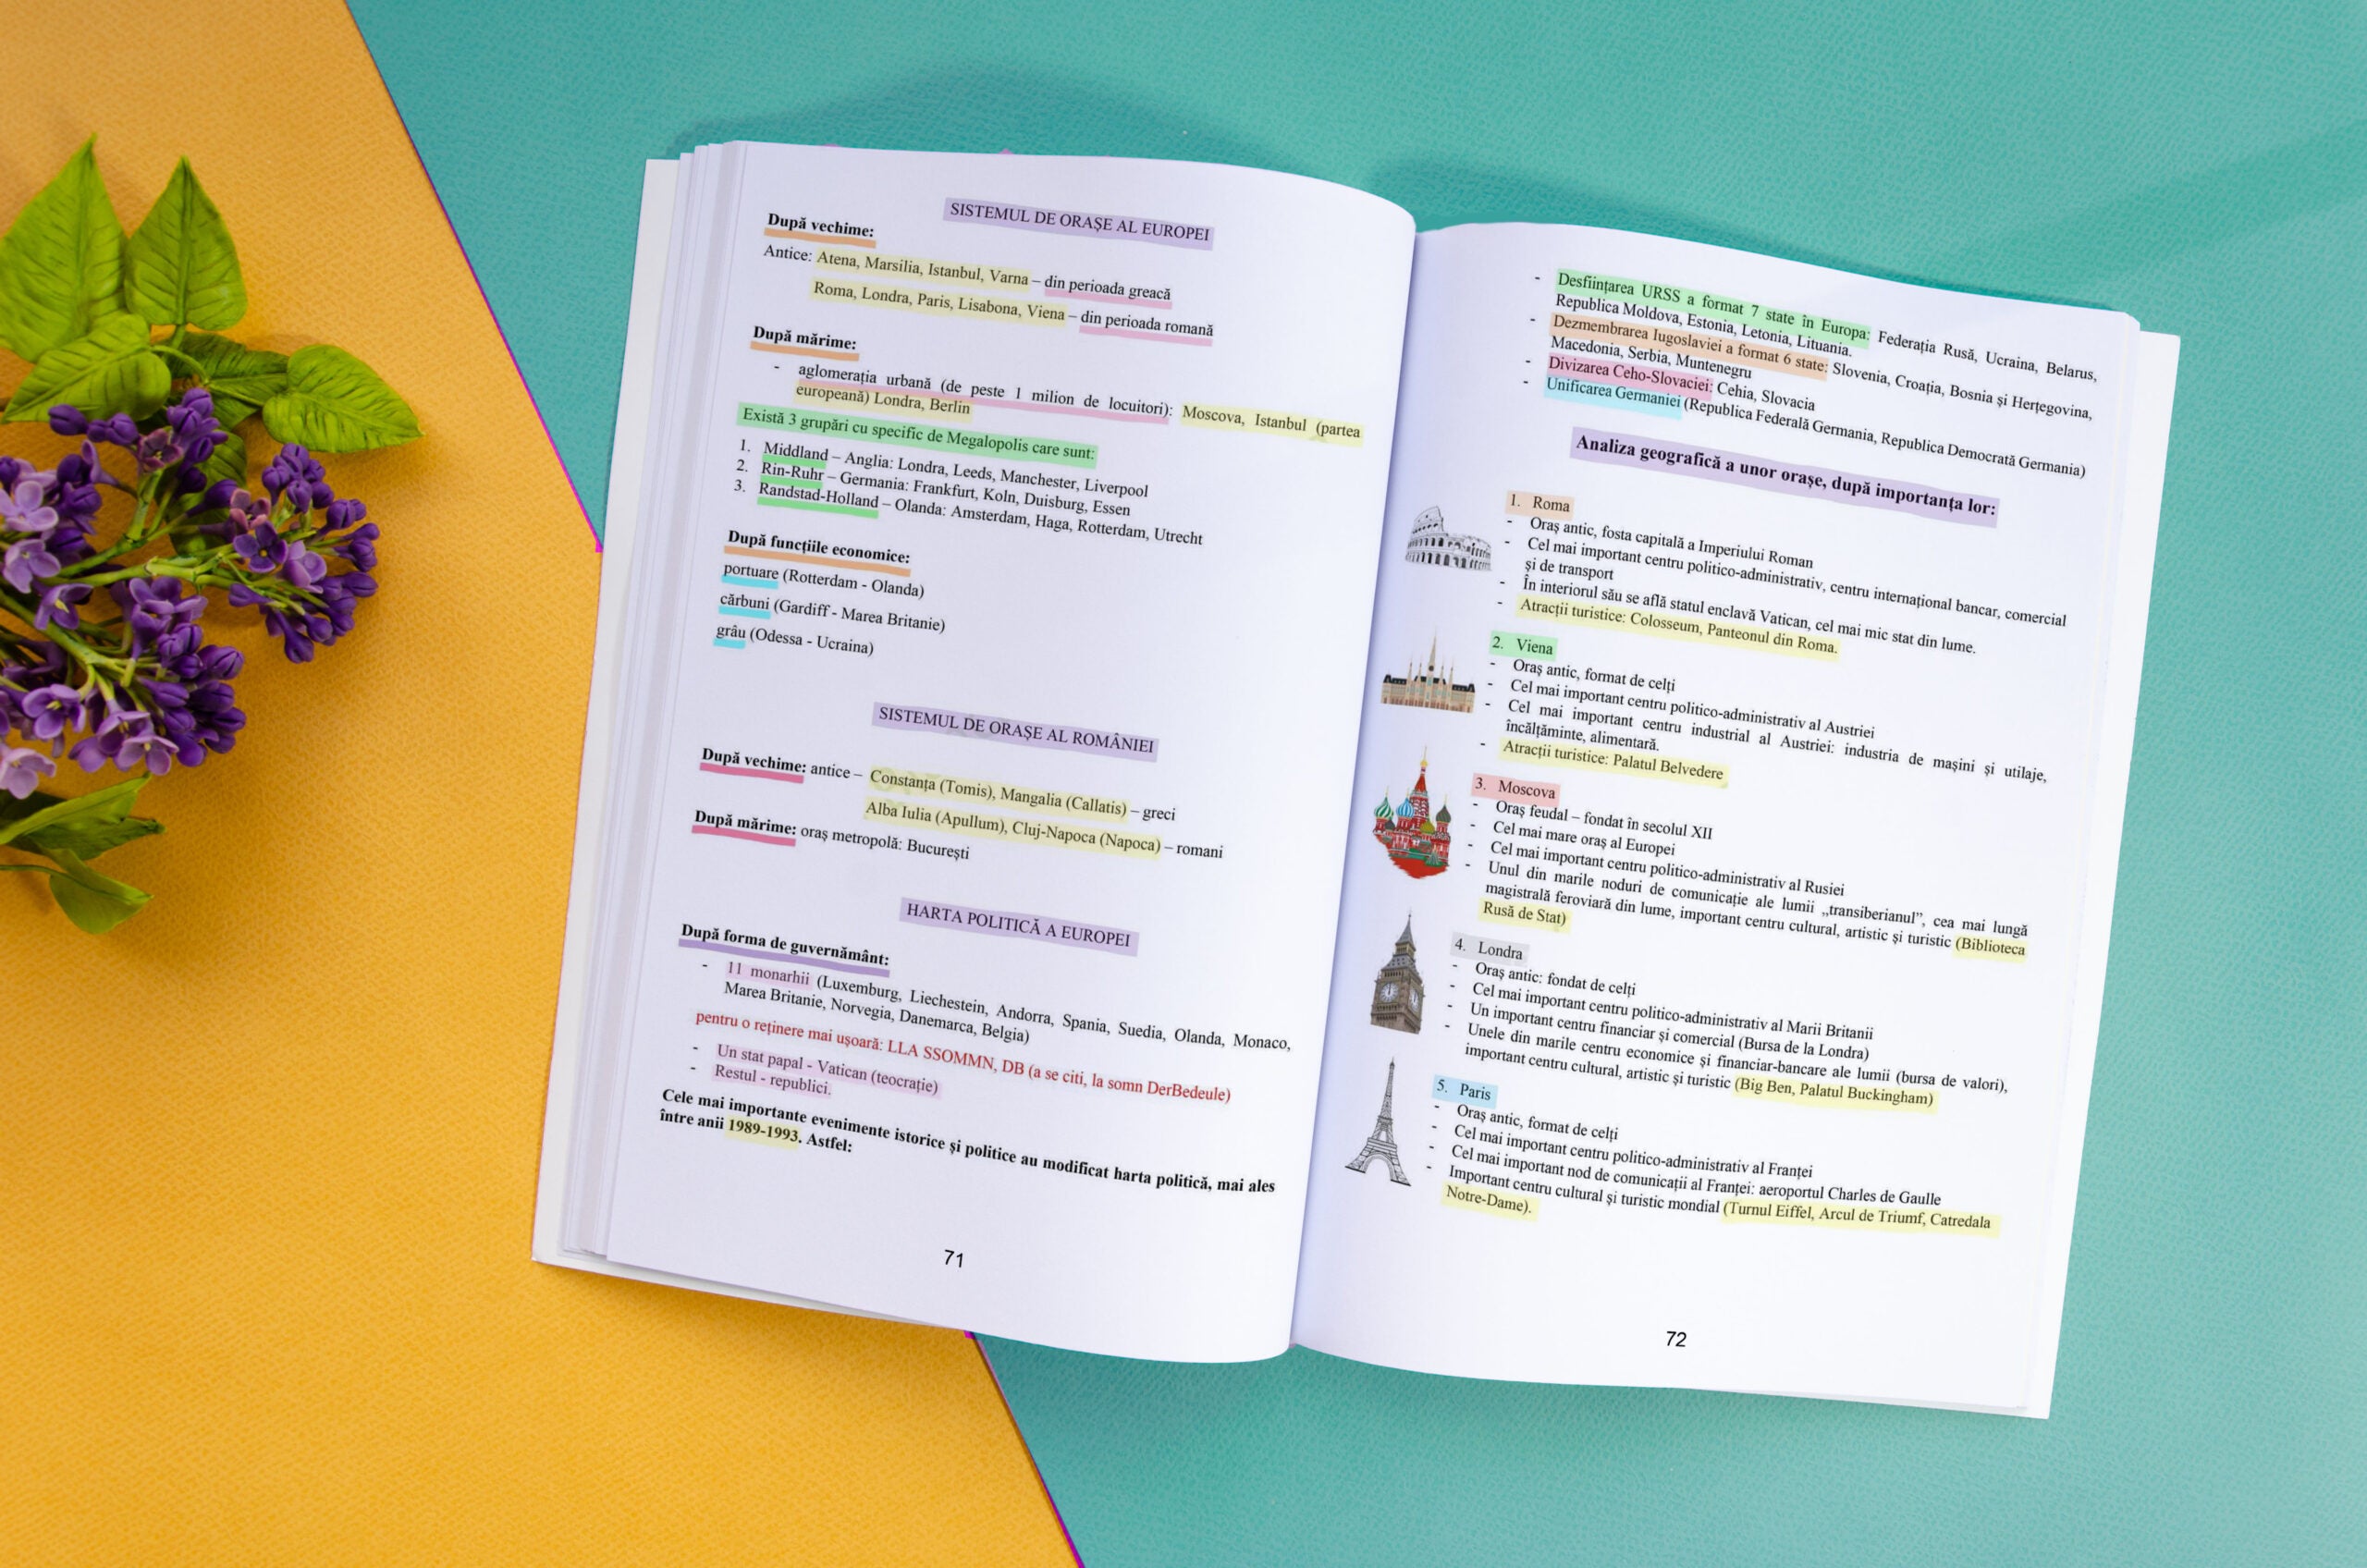 SISTEMUL DE ORAȘE AL EUROPEI
După vechime:
Antice: Atena, Marsilia, Istanbul, Varna – din perioada greacă
Roma, Londra, Paris, Lisabona, Viena – din perioada romană
După mărime:
- aglomerația urbană (de peste 1 milion de locuitori): Moscova, Istanbul (partea
europeană) Londra, Berlin
Există 3 grupări cu specific de Megalopolis care sunt:
1. Middland – Anglia: Londra, Leeds, Manchester, Liverpool
2. Rin-Ruhr – Germania: Frankfurt, Koln, Duisburg, Essen
3. Randstad-Holland – Olanda: Amsterdam, Haga, Rotterdam, Utrecht
După funcțiile economice:
portuare (Rotterdam - Olanda)
cărbuni (Gardiff - Marea Britanie)
grâu (Odessa - Ucraina)
SISTEMUL DE ORAȘE AL ROMÂNIEI
După vechime: antice – Constanța (Tomis), Mangalia (Callatis) – greci
Alba Iulia (Apullum), Cluj-Napoca (Napoca) – romani
După mărime: oraș metropolă: București
HARTA POLITICĂ A EUROPEI
După forma de guvernământ:
- 11 monarhii (Luxemburg, Liechestein, Andorra, Spania, Suedia, Olanda, Monaco,
Marea Britanie, Norvegia, Danemarca, Belgia)
pentru o reținere mai ușoară: LLA SSOMMN, DB (a se citi, la somn DerBedeule)
- Un stat papal - Vatican (teocrație)
- Restul - republici.
Cele mai importante evenimente istorice și politice au modificat harta politică, mai ales
între anii 1989-1993. Astfel:
71
- Desființarea URSS a format 7 state în Europa: Federația Rusă, Ucraina, Belarus,
Republica Moldova, Estonia, Letonia, Lituania.
- Dezmembrarea Iugoslaviei a format 6 state: Slovenia, Croația, Bosnia și Herțegovina,
Macedonia, Serbia, Muntenegru
- Divizarea Ceho-Slovaciei: Cehia, Slovacia
- Unificarea Germaniei (Republica Federală Germania, Republica Democrată Germania)
Analiza geografică a unor orașe, după importanța lor:
1. Roma
- Oraș antic, fosta capitală a Imperiului Roman
- Cel mai important centru politico-administrativ, centru internațional bancar, comercial
și de transport
- În interiorul său se află statul enclavă Vatican, cel mai mic stat din lume.
- Atracții turistice: Colosseum, Panteonul din Roma.
2. Viena
- Oraș antic, format de celți
- Cel mai important centru politico-administrativ al Austriei
- Cel mai important centru industrial al Austriei: industria de mașini și utilaje,
încălțăminte, alimentară.
- Atracții turistice: Palatul Belvedere
3. Moscova
- Oraș feudal – fondat în secolul XII
- Cel mai mare oraș al Europei
- Cel mai important centru politico-administrativ al Rusiei
- Unul din marile noduri de comunicație ale lumii „transiberianul”, cea mai lungă
magistrală feroviară din lume, important centru cultural, artistic și turistic (Biblioteca
Rusă de Stat)
4. Londra
- Oraș antic: fondat de celți
- Cel mai important centru politico-administrativ al Marii Britanii
- Un important centru financiar și comercial (Bursa de la Londra)
- Unele din marile centru economice și financiar-bancare ale lumii (bursa de valori),
important centru cultural, artistic și turistic (Big Ben, Palatul Buckingham)
5. Paris
- Oraș antic, format de celți
- Cel mai important centru politico-administrativ al Franței
- Cel mai important nod de comunicații al Franței: aeroportul Charles de Gaulle
- Important centru cultural și turistic mondial (Turnul Eiffel, Arcul de Triumf, Catredala
Notre-Dame).
72